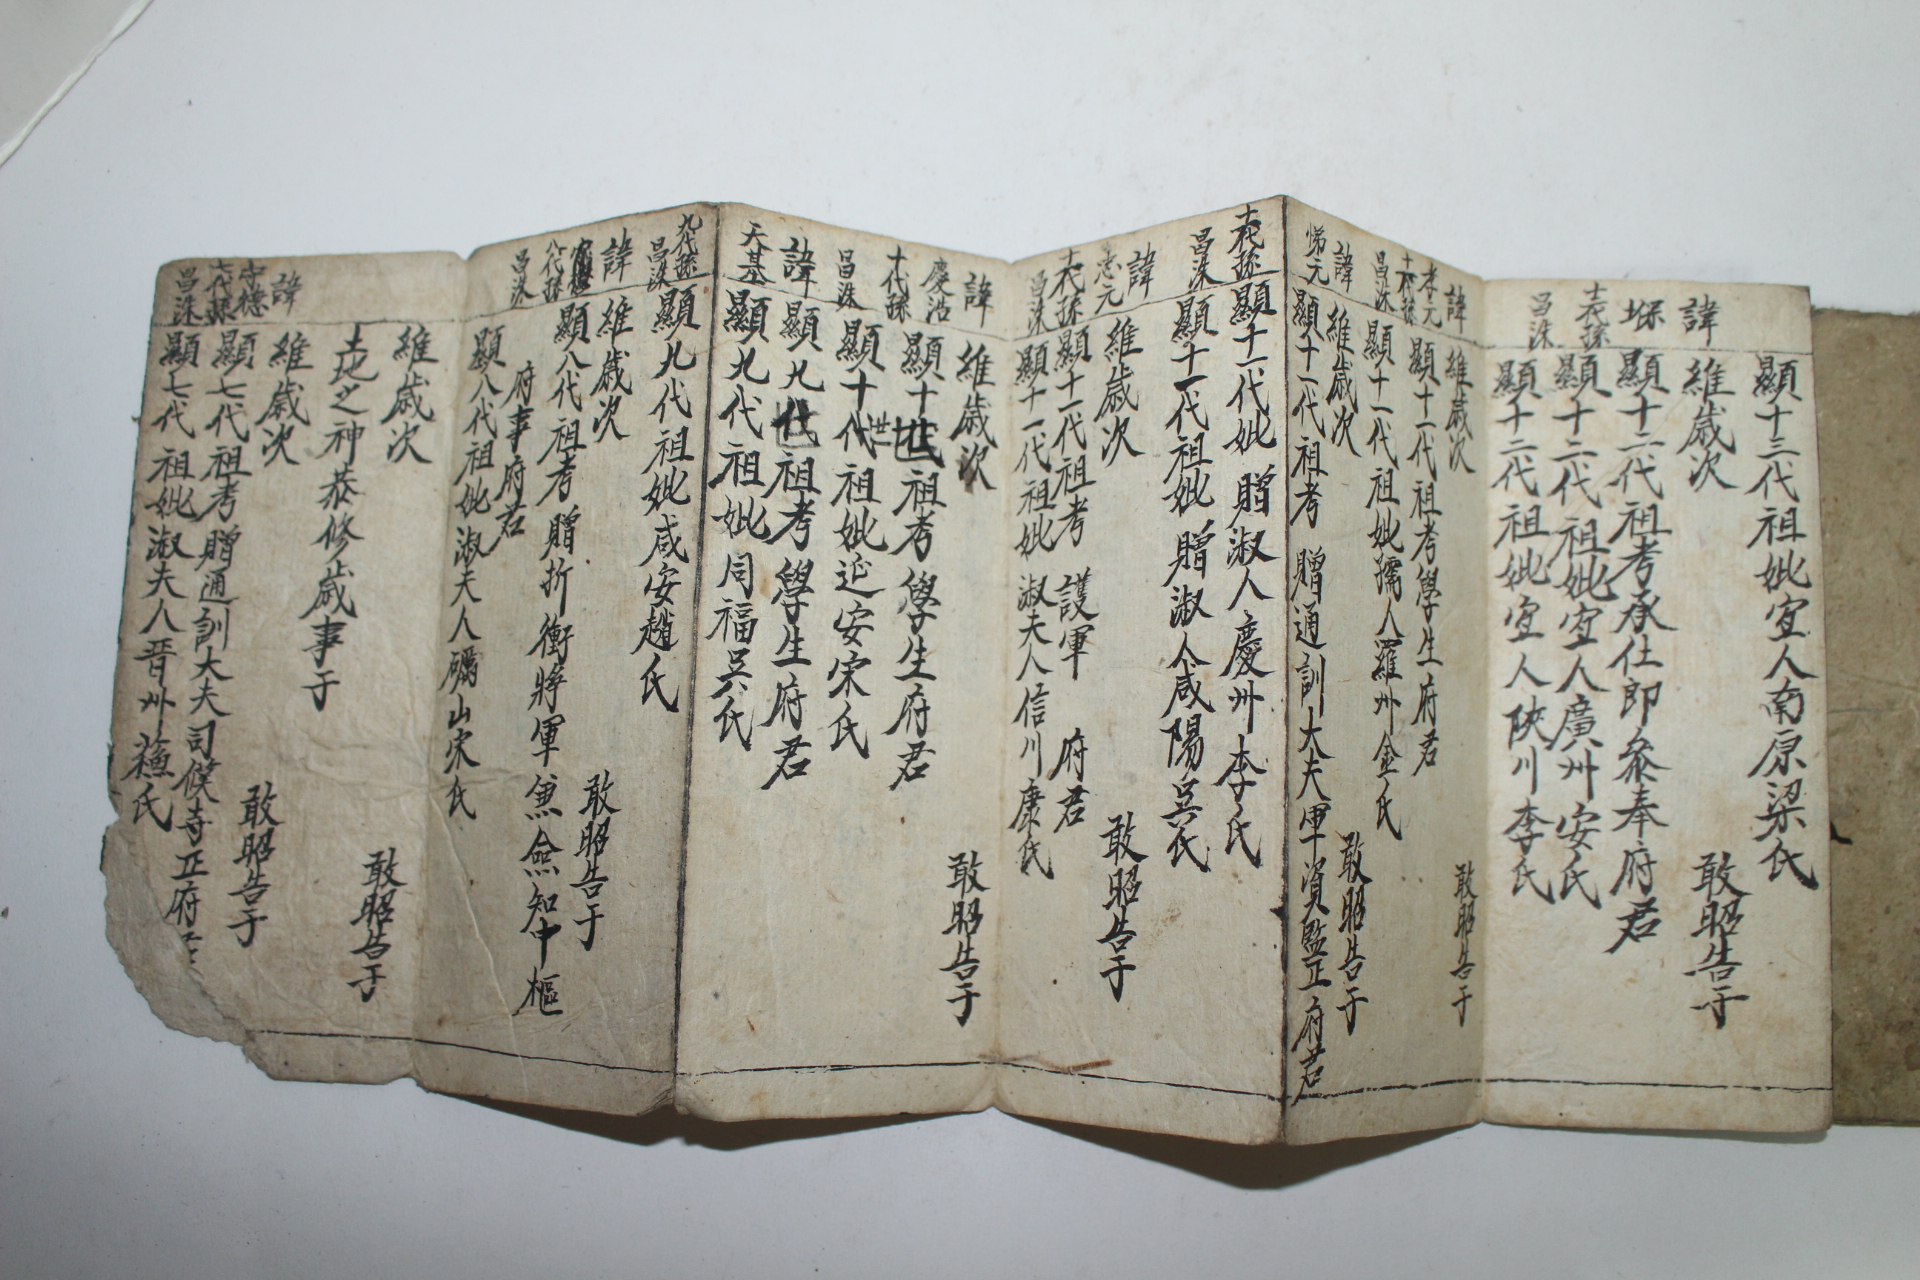 顯十三代祖妣宜人南原梁氏
諱
維歲次
敢昭告于
顯十二代祖考承仕郎叅奉府君
十二代孫
顯十二代祖妣宜人廣州安氏
昌洙
顯十二代祖妣宜人陜川李氏
諱
維歲次
敢昭告于
孝元
顯十一代祖考學生府君
十一代孫
昌洙
顯十一代祖妣孺人羅州金氏
諱
維歲次
敢昭告于
悌元
顯十一代祖考 贈通訓大夫軍資監正府君
十一代孫
顯十一代祖妣 贈淑人慶州李氏
昌洙
顯十一代祖妣 贈淑人咸陽吳氏
諱
維歲次
敢昭告于
忠元
十一代孫
顯十一代祖考 護軍 府君
昌洙
顯十一代祖妣 淑夫人信川康氏
諱
維歲次
敢昭告于
慶浩
顯十世祖考學生府君
十代孫
昌洙
顯十代祖妣延安宋氏
世
諱
顯九代祖考學生府君
天基
顯九代祖妣同福吳氏
九代孫
昌洙
顯九代祖妣咸安趙氏
諱
維歲次
敢昭告于
八代孫
顯八代祖考 贈折衝將軍兼僉知中樞
府事府君
昌洙
顯八代祖妣淑夫人礪山宋氏
維歲次
敢昭告于
土地之神恭修歲事于
諱
維歲次
敢昭告于
守德
七代孫
顯七代祖考贈通訓大夫司僕寺正府
昌洙
顯七代祖妣淑夫人晋州蘓氏